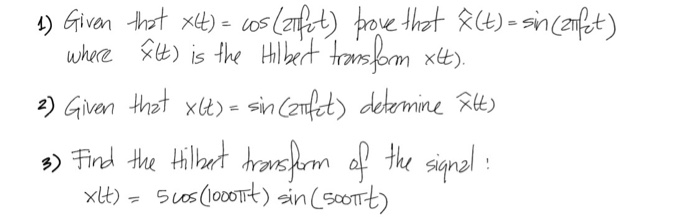 1) Given that x(t) = cos(2πfct) prove that x̂(t) = sin(2πfct)
where x̂(t) is the Hilbert transform x(t).
2) Given that x(t) = sin(2πfct) determine x̂(t)
3) Find the Hilbert transform of the signal :
x(t) = 5 cos(1000πt) sin(500πt)